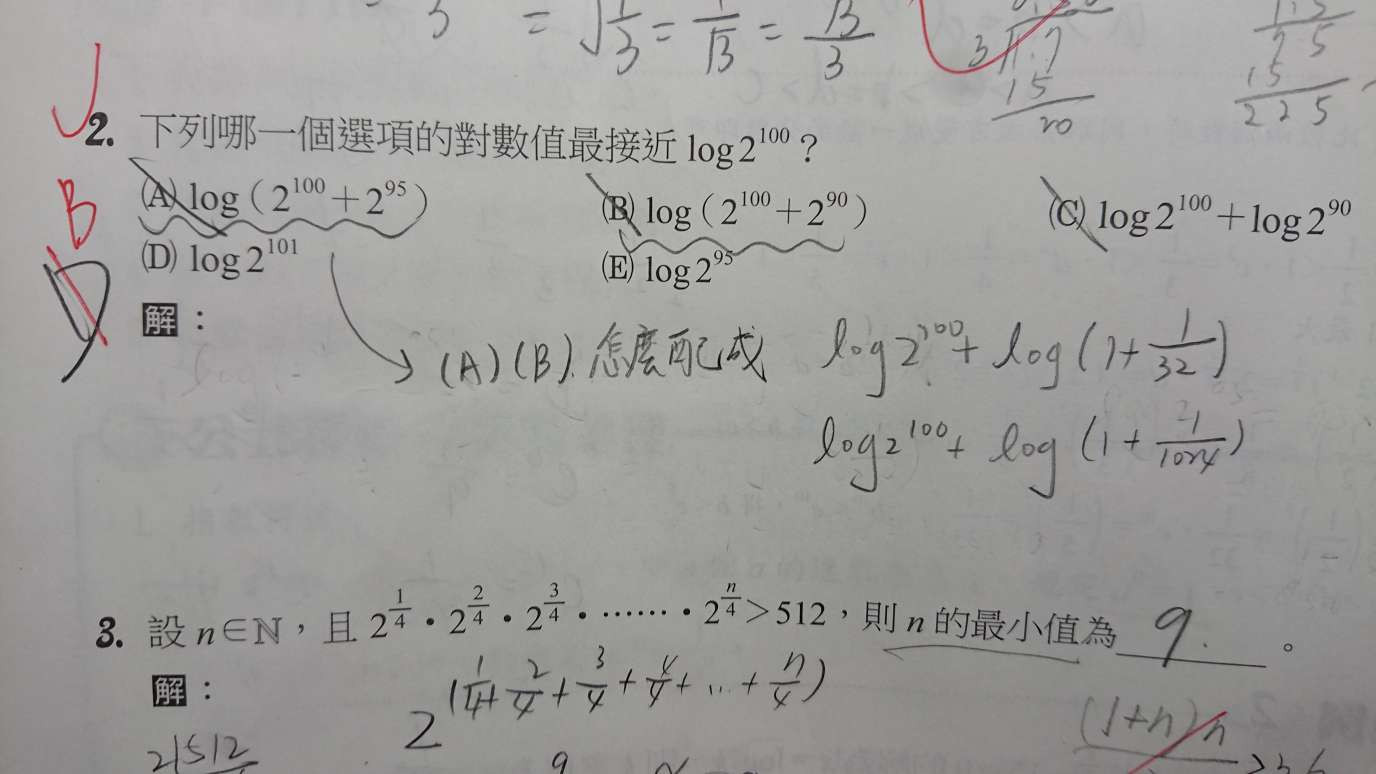 3 = √1/3 = 1/√3 = √3/3
3 1.7
15
20
7 5
15
2 2 5
2. 下列哪一個選項的對數值最接近 log2¹⁰⁰?
(A) log(2¹⁰⁰+2⁹⁵) (B) log(2¹⁰⁰+2⁹⁰) (C) log2¹⁰⁰+log2⁹⁰
B
(D) log2¹⁰¹ (E) log2⁹⁵
解:
(A)(B). 怎麼配成 log2¹⁰⁰+ log(1+1/32)
log2¹⁰⁰+ log(1+1/1024)
3. 設 n∈ℕ,且 2^(1/4)・2^(2/4)・2^(3/4)・……・2^(n/4)>512,則 n 的最小值為 9. 。
解:
2^(1/4+2/4+3/4+4/4+...+n/4)
(1+n)n
2 512
9